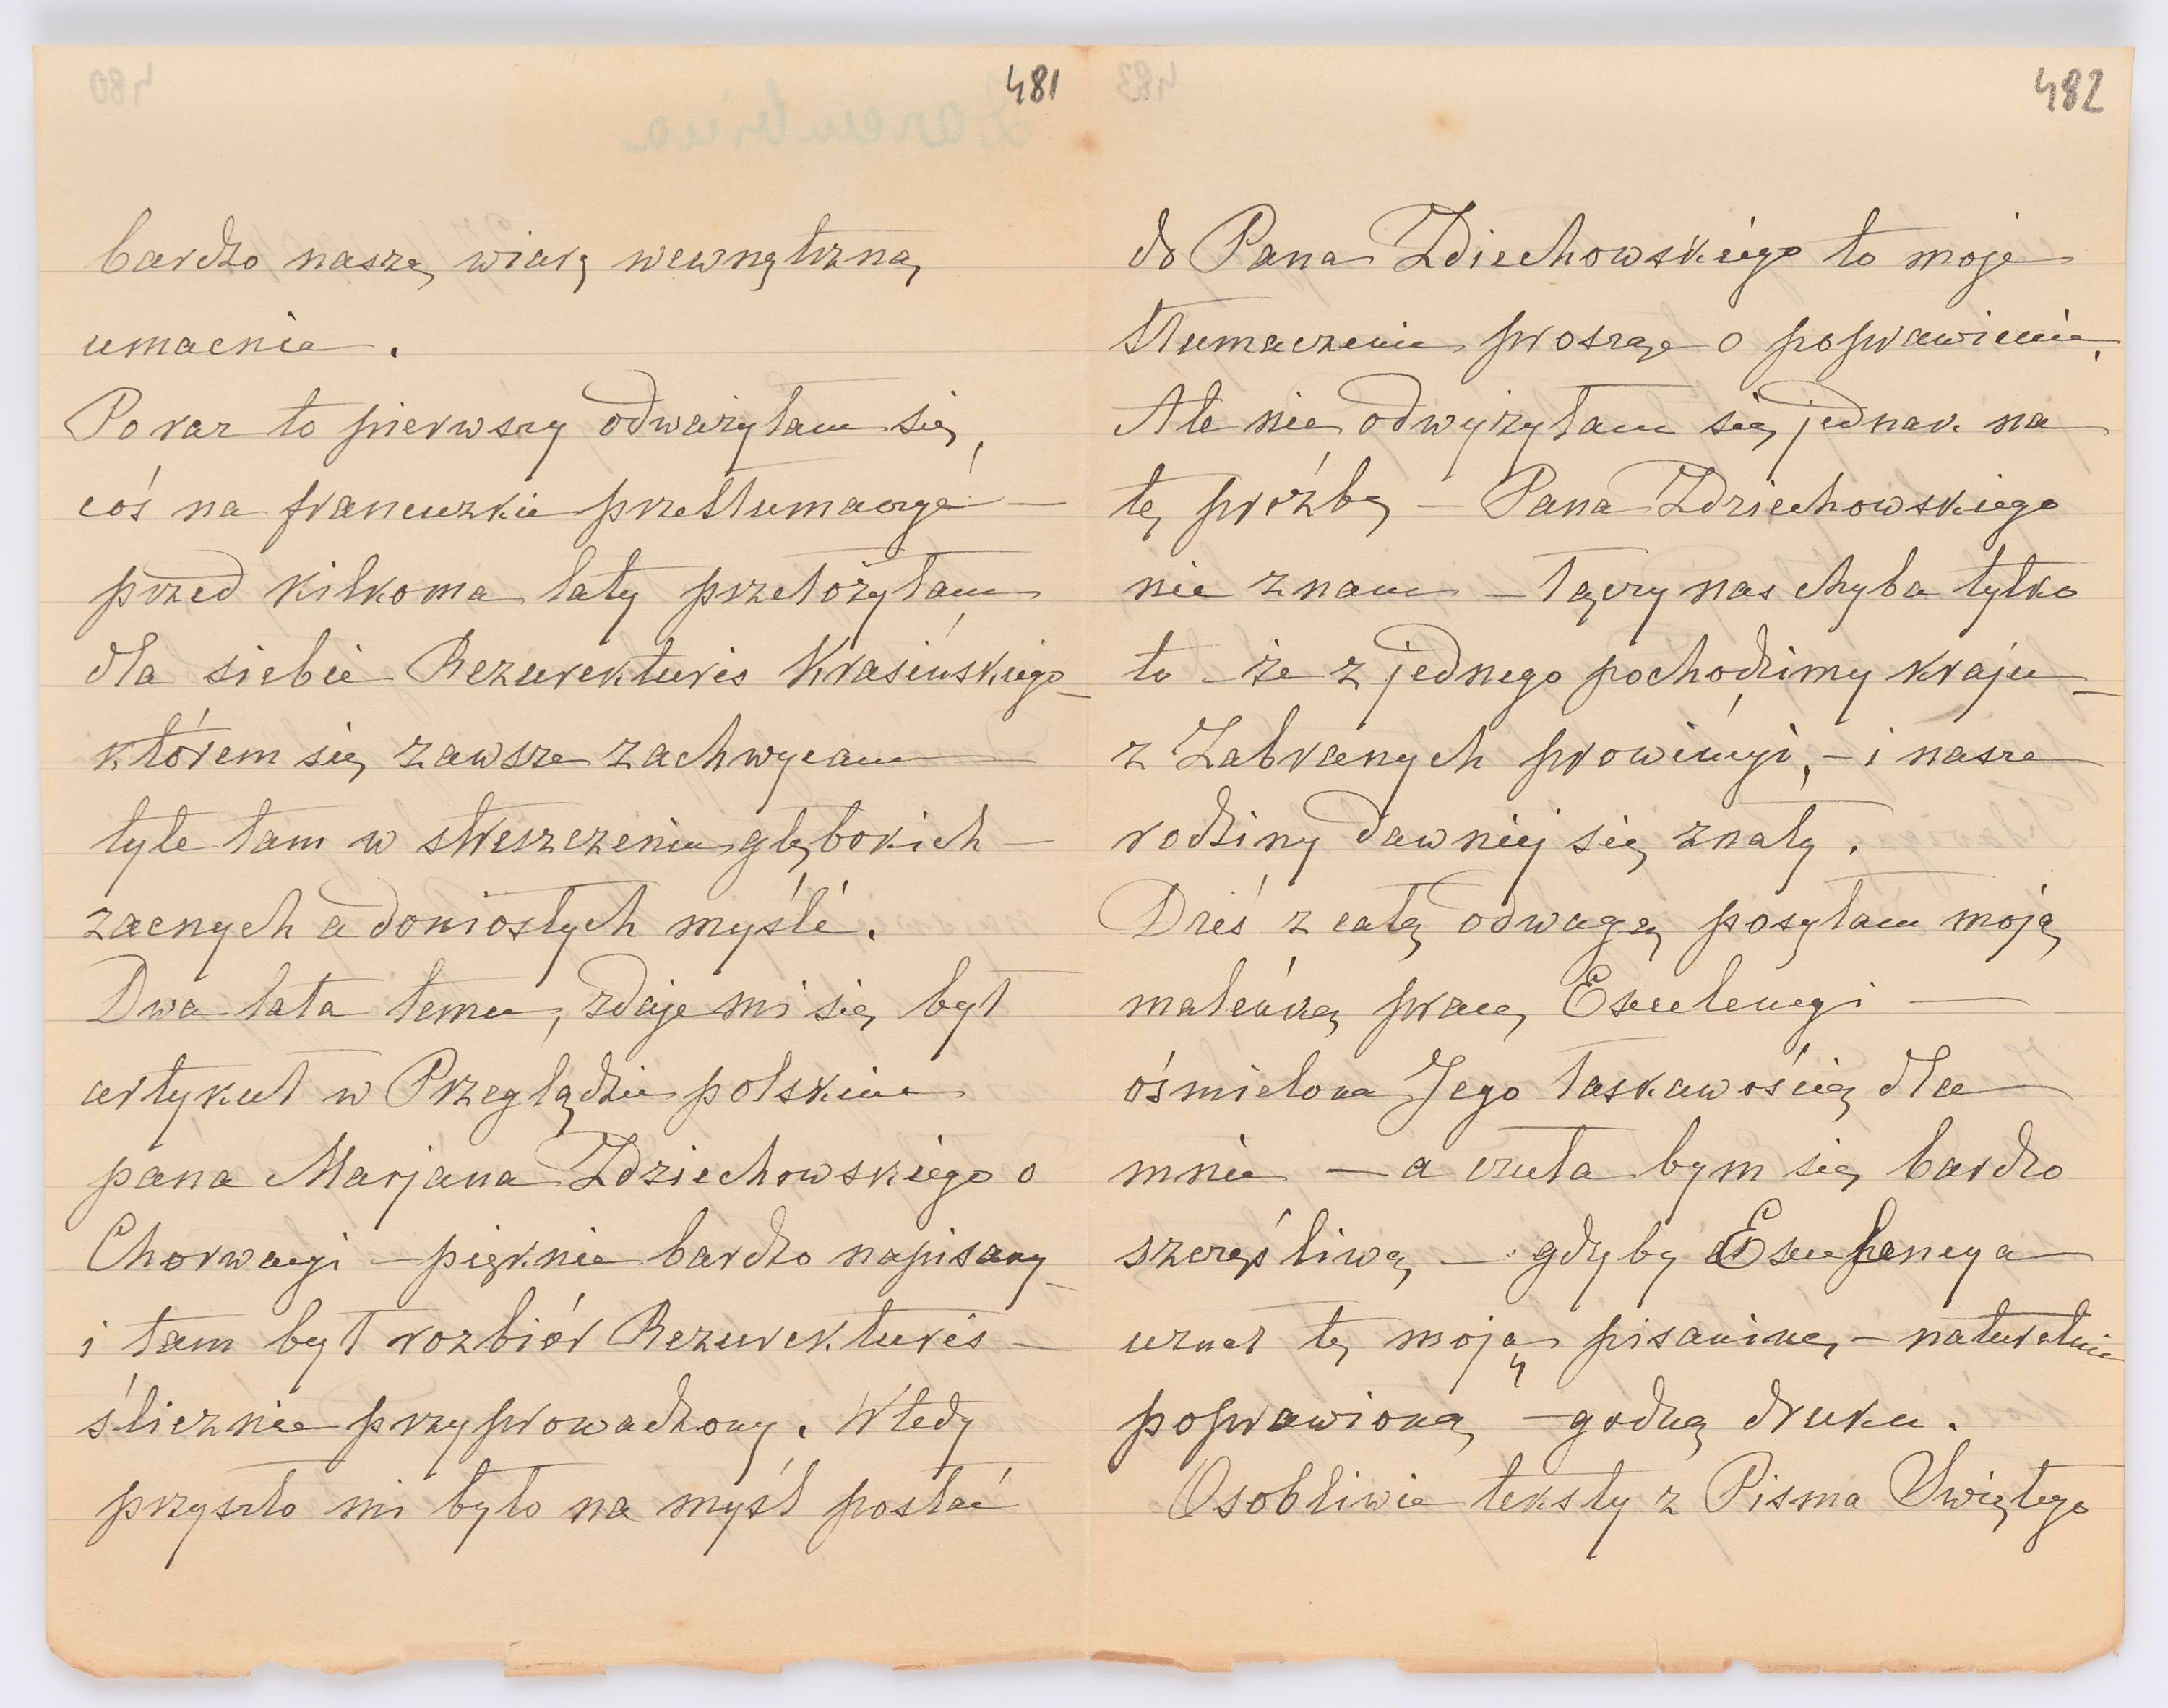 481
bardzo naszą wiarę wewnętrzną
umacnia.
Po raz to pierwszy odważyłam się,
coś na francuzkie przetłumaczyć —
przed kilkoma laty przełożyłam
dla siebie Rezurekturis Krasińskiego —
którem się zawsze zachwycam
tyle tam w streszczeniu głębokich —
zacnych a doniosłych myśli.
Dwa lata temu, zdaje mi się był
artykuł w Przeglądzie polskim
pana Marjana Zdziechowskiego o
Chorwacyi — pięknie bardzo napisany —
i tam był rozbiór Rezurekturis —
ślicznie przyprowadzony. Wtedy
przyszło mi było na myśl posłać
482
do Pana Zdiechowskiego to moje
tłumaczenie prosząc o poprawienie.
Ale nie odwyżyłam się jednak na
tę proźbę — Pana Zdziechowskiego
nie znam — łączy nas chyba tylko
to — że z jednego pochodzimy kraju —
z Zabranych prowincyi, — i nasze
rodziny dawniej się znały.
Dziś z całą odwagą posyłam moją
maleńką pracę Exculencyi —
ośmielona Jego łaskawością dla
mnie — a czuła bym się bardzo
szczęśliwą — gdyby Exculencya
uznał tę moją pisaninę, — naturalnie
poprawioną — godną druku.
Osobliwie teksty z Pisma Swiętego